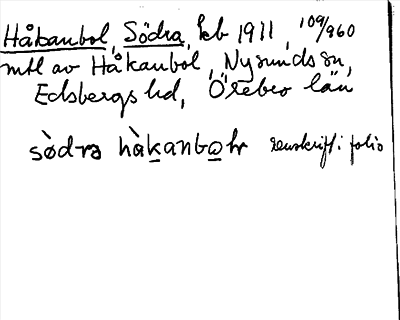 Håkanbol, Södra, kb 1911, 109/960
mtl av Håkanbol, Nysunds sn,
Edsbergs hd, Örebro län
sòdra hàkanboḷ renskrift i folio